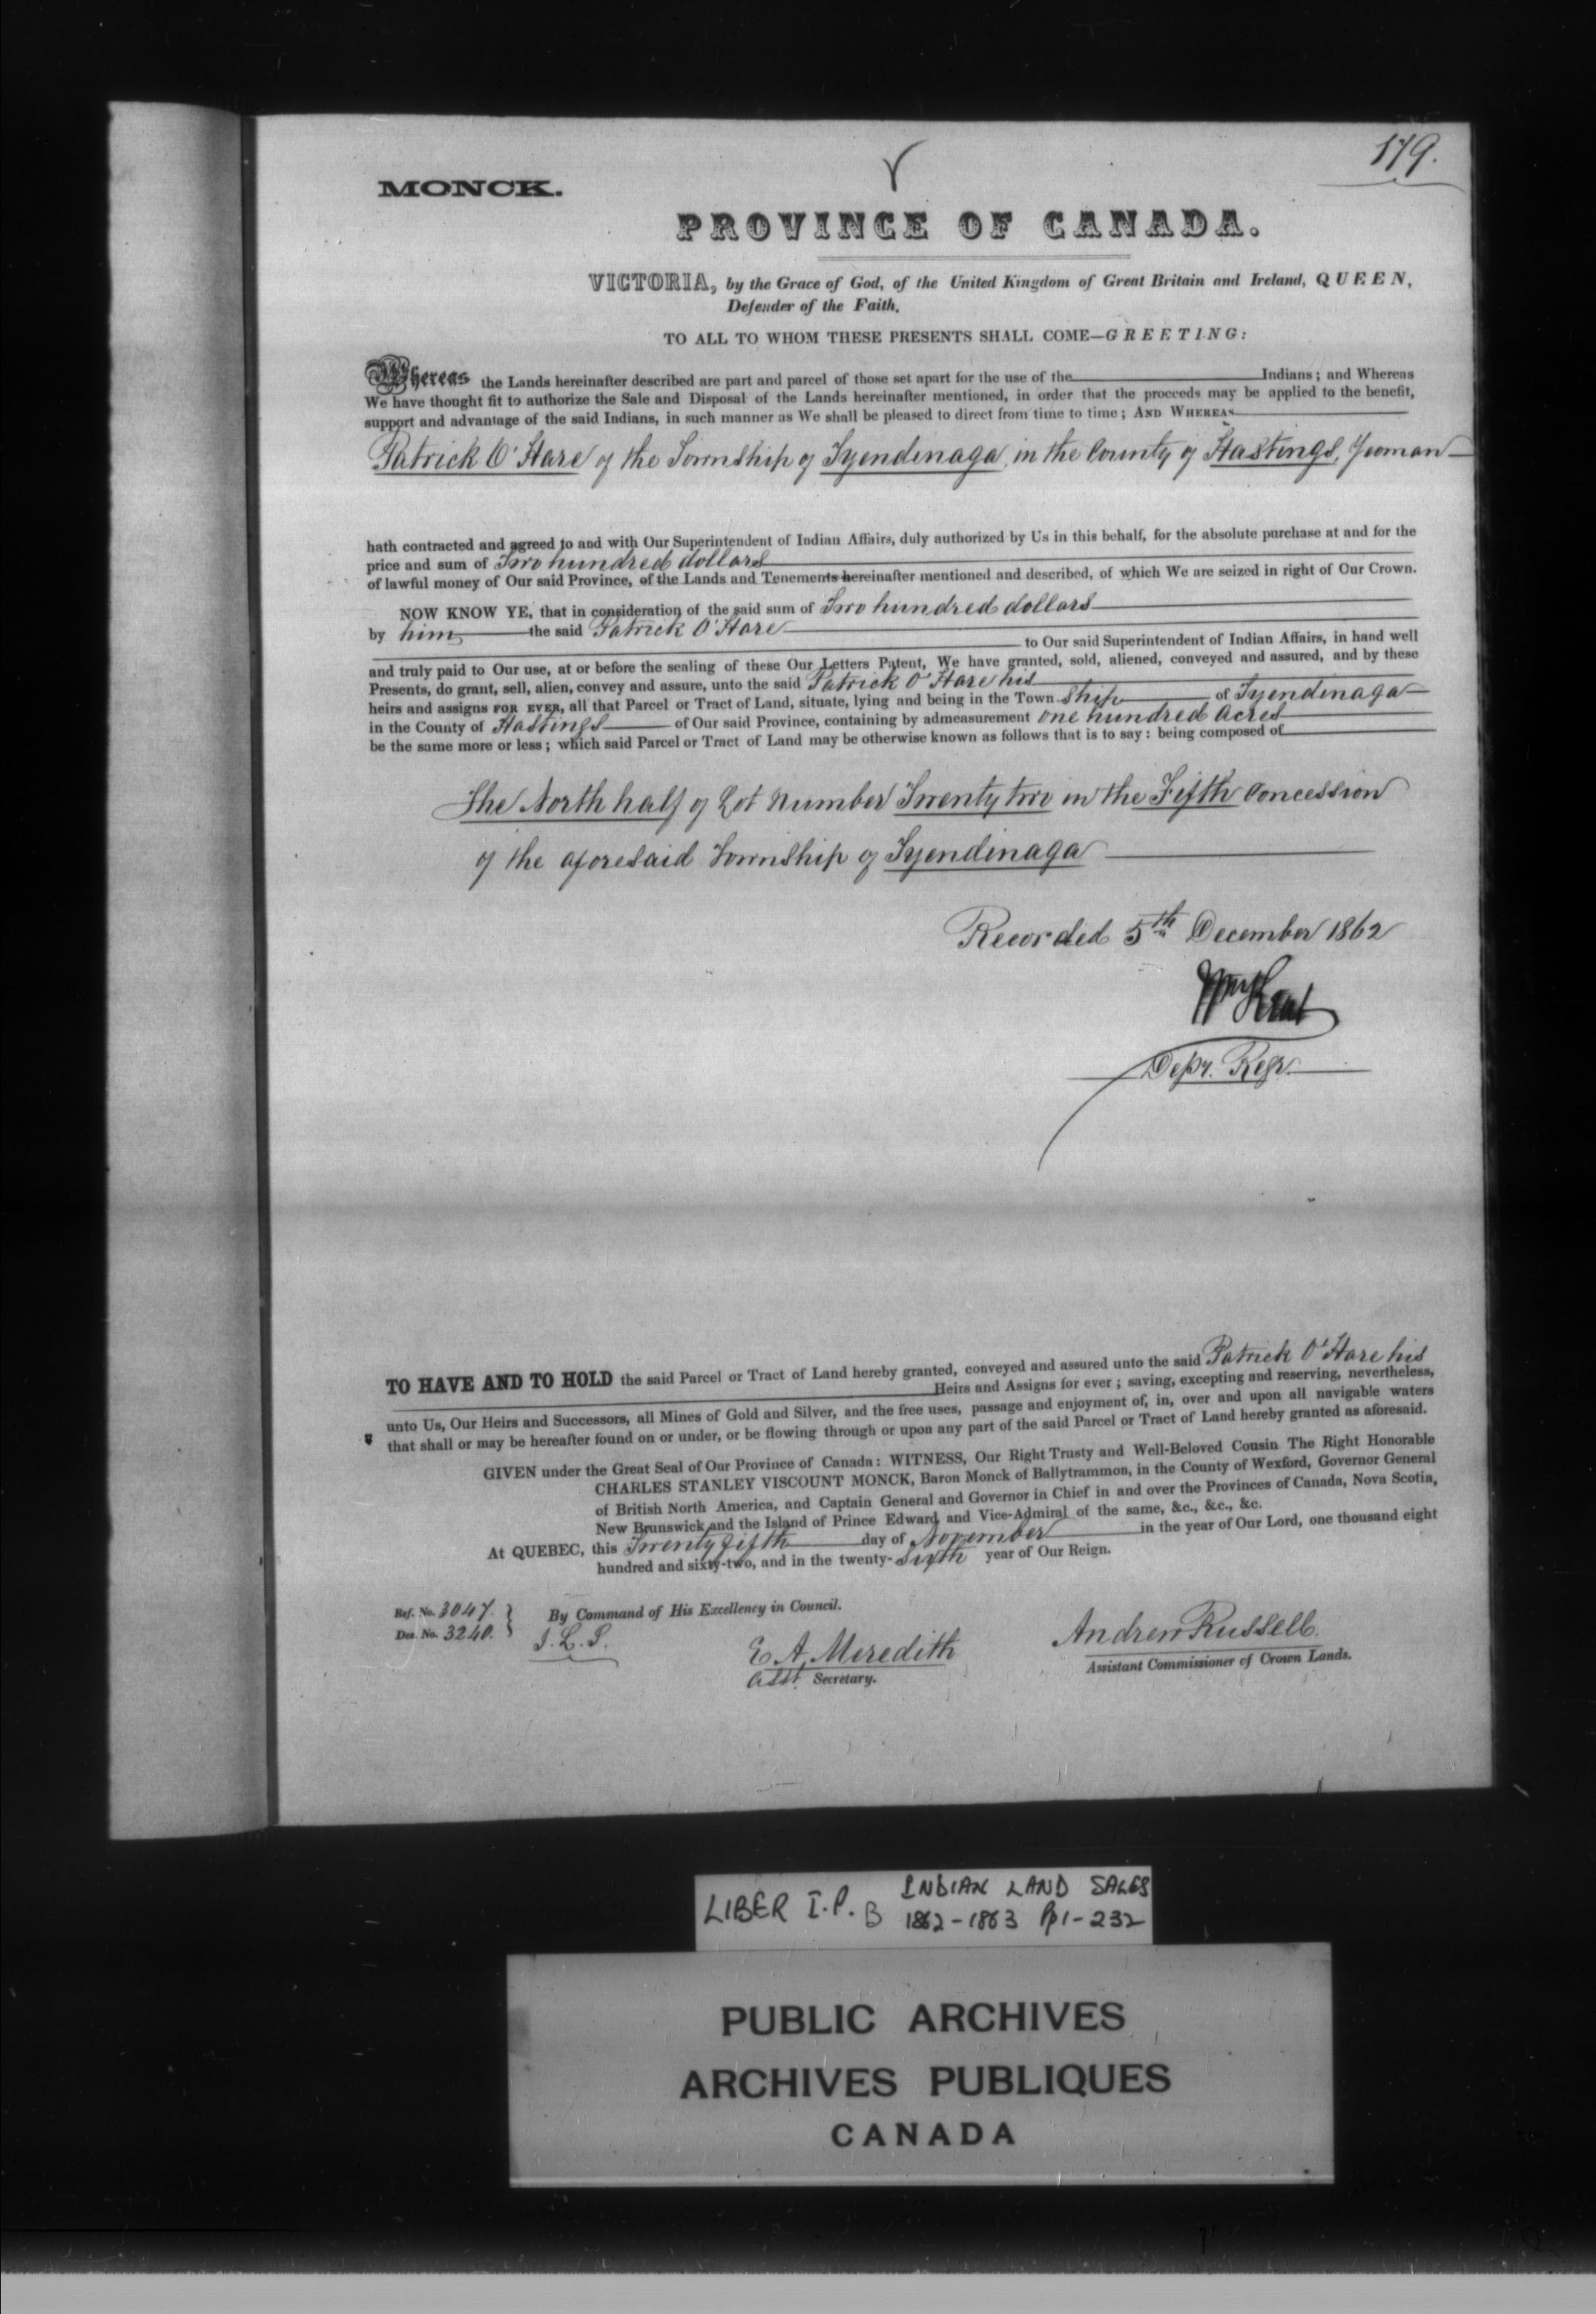 179.
MONCK.
PROVINCE OF CANADA.
VICTORIA, by the Grace of God, of the United Kingdom of Great Britain and Ireland, QUEEN,
Defender of the Faith,
TO ALL TO WHOM THESE PRESENTS SHALL COME—GREETING:
Whereas the Lands hereinafter described are part and parcel of those set apart for the use of the Indians; and Whereas
We have thought fit to authorize the Sale and Disposal of the Lands hereinafter mentioned, in order that the proceeds may be applied to the benefit,
support and advantage of the said Indians, in such manner as We shall be pleased to direct from time to time; AND WHEREAS
Patrick O'Hare of the Township of Tyendinaga, in the County of Hastings, Yeoman
hath contracted and agreed to and with Our Superintendent of Indian Affairs, duly authorized by Us in this behalf, for the absolute purchase at and for the
price and sum of Two hundred dollars
of lawful money of Our said Province, of the Lands and Tenements hereinafter mentioned and described, of which We are seized in right of Our Crown.
NOW KNOW YE, that in consideration of the said sum of Two hundred dollars
by him, the said Patrick O'Hare
to Our said Superintendent of Indian Affairs, in hand well
and truly paid to Our use, at or before the sealing of these Our Letters Patent, We have granted, sold, aliened, conveyed and assured, and by these
Presents, do grant, sell, alien, convey and assure, unto the said Patrick O'Hare his
heirs and assigns FOR EVER, all that Parcel or Tract of Land, situate, lying and being in the Town ship of Tyendinaga
in the County of Hastings of Our said Province, containing by admeasurement one hundred Acres
be the same more or less; which said Parcel or Tract of Land may be otherwise known as follows that is to say: being composed of
The North half of Lot number Twenty two in the Fifth Concession
of the aforesaid Township of Tyendinaga
Recorded 5th December 1862
Wm Kent
Depy. Regr.
TO HAVE AND TO HOLD the said Parcel or Tract of Land hereby granted, conveyed and assured unto the said Patrick O'Hare his
Heirs and Assigns for ever; saving, excepting and reserving, nevertheless,
unto Us, Our Heirs and Successors, all Mines of Gold and Silver, and the free uses, passage and enjoyment of, in, over and upon all navigable waters
that shall or may be hereafter found on or under, or be flowing through or upon any part of the said Parcel or Tract of Land hereby granted as aforesaid.
GIVEN under the Great Seal of Our Province of Canada: WITNESS, Our Right Trusty and Well-Beloved Cousin The Right Honorable
CHARLES STANLEY VISCOUNT MONCK, Baron Monck of Ballytrammon, in the County of Wexford, Governor General
of British North America, and Captain General and Governor in Chief in and over the Provinces of Canada, Nova Scotia,
New Brunswick and the Island of Prince Edward, and Vice-Admiral of the same, &c., &c., &c.
At QUEBEC, this Twenty fifth day of November in the year of Our Lord, one thousand eight
hundred and sixty-two, and in the twenty-sixth year of Our Reign.
Ref. No. 3047.
Des. No. 3240.
By Command of His Excellency in Council.
E A Meredith
Asst. Secretary.
Andrew Russell.
Assistant Commissioner of Crown Lands.
LIBER I.P. B INDIAN LAND SALES
1862-1863 Pp 1-232
PUBLIC ARCHIVES
ARCHIVES PUBLIQUES
CANADA